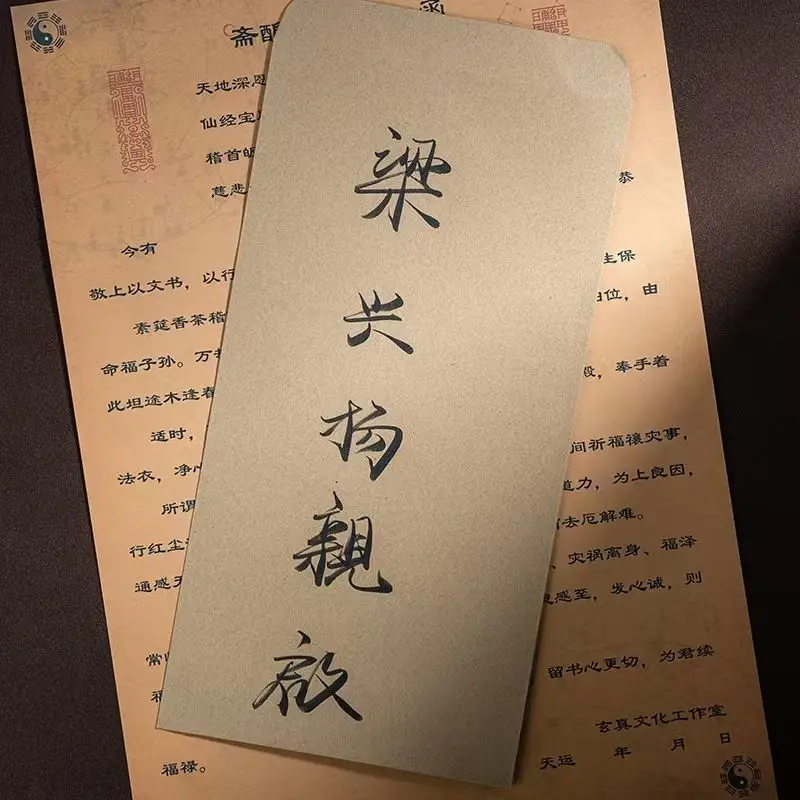 梁兴扬親啟
斋醮
天地深恩
仙经宝
稽首
慈悲 恭
今有 生保
敬上以文书，以行 位，由
素筵香茶稽
命福子孙。万 殿，奉手着
此坦途木逢春
适时， 间祈福禳灾事，
法衣，净心 道力，为上良因，
所谓 去厄解难。
行红尘 、灾祸离身、福泽
通感 感至，发心诚，则
常 留书心更切，为君续
福
玄真文化工作室
福禄。 天运 年 月 日